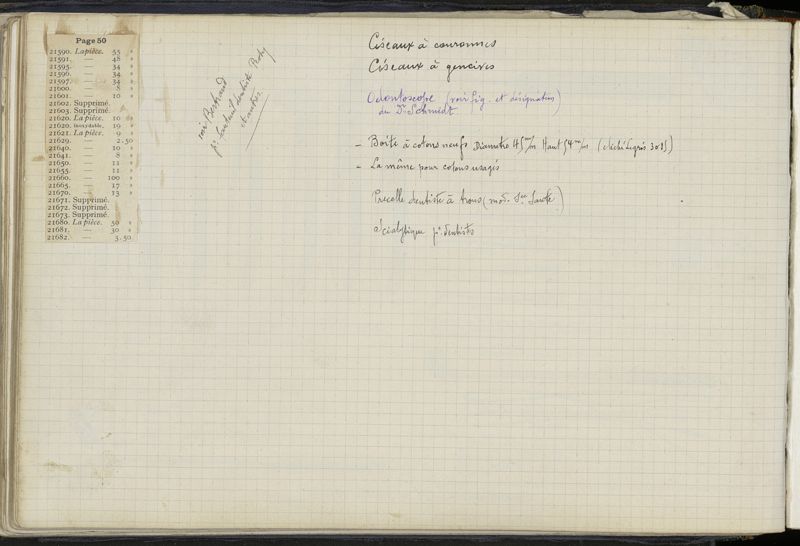 Page 50
21590. La pièce. 55 »
21591. — 48 »
21595. — 34 »
21596. — 34 »
21597. — 34 »
21600. — 8 »
21601. — 10 »
21602. Supprimé.
21603. Supprimé.
21620. La pièce. 10 »
21620. inoxydable. 19 »
21621. La pièce. 9 »
21629. — 2.50
21640. — 10 »
21641. — 8 »
21650. — 11 »
21655. — 11 »
21660. — 100 »
21665. — 17 »
21670. — 13 »
21671. Supprimé.
21672. Supprimé.
21673. Supprimé.
21680. La pièce. 50 »
21681. — 30 »
21682. — 3.50
voir Bertrand
pr fauteuil dentiste
et autres.
Ciseaux à couronnes
Ciseaux à gencives
Odontoscope (voir fig. et désignation)
du Dr Schmidt
- Boîte à cotons neufs Diamètre 45 m/m Haut 54 m/m
- La même pour cotons usagés
Précelle dentiste à trous (mod.
Scialytique pr. dentiste